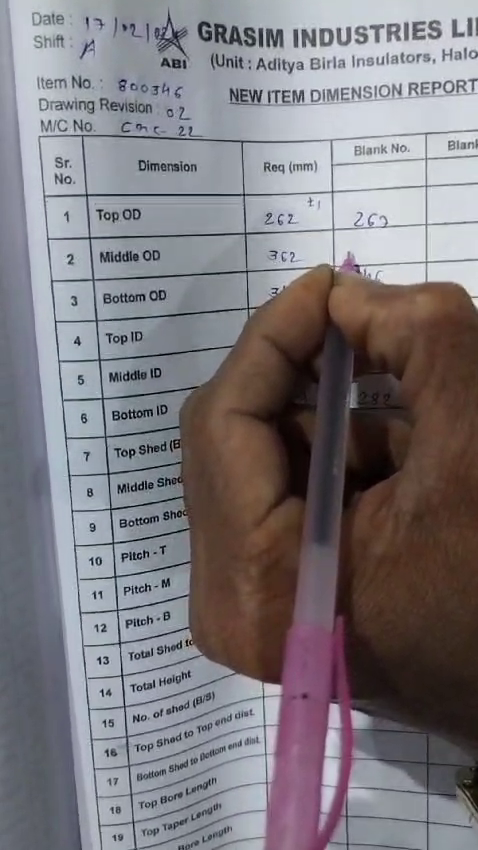 Date : 17/02/
Shift : A
ABI
GRASIM INDUSTRIES LI
(Unit : Aditya Birla Insulators, Halo
Item No. : 800346
NEW ITEM DIMENSION REPORT
Drawing Revision : 02
M/C No. CNC-22
Sr. No. Dimension Req (mm) Blank No. Blank
1 Top OD 262 ±1 262
2 Middle OD 362
3 Bottom OD
4 Top ID
5 Middle ID
6 Bottom ID
7 Top Shed (B
8 Middle Shed
9 Bottom Shed
10 Pitch - T
11 Pitch - M
12 Pitch - B
13 Total Shed to
14 Total Height
15 No. of shed (B/S)
16 Top Shed to Top end dist.
17 Bottom Shed to Bottom end dist.
18 Top Bore Length
19 Top Taper Length
Bore Length